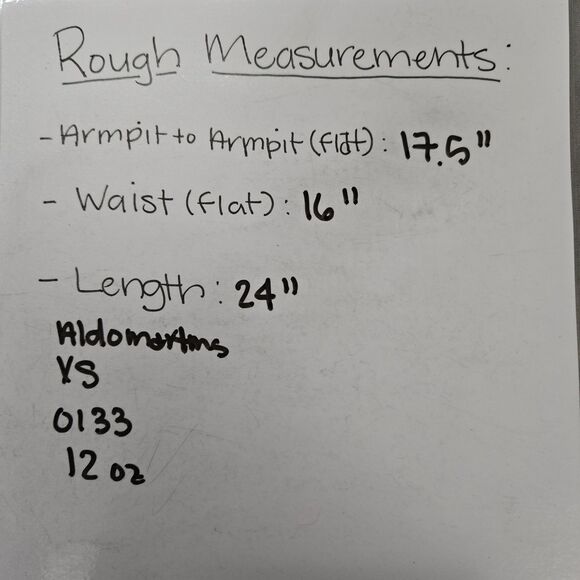 Rough Measurements:
- Armpit to Armpit (flat): 17.5"
- Waist (flat): 16"
- Length: 24"
XS
0133
12 oz